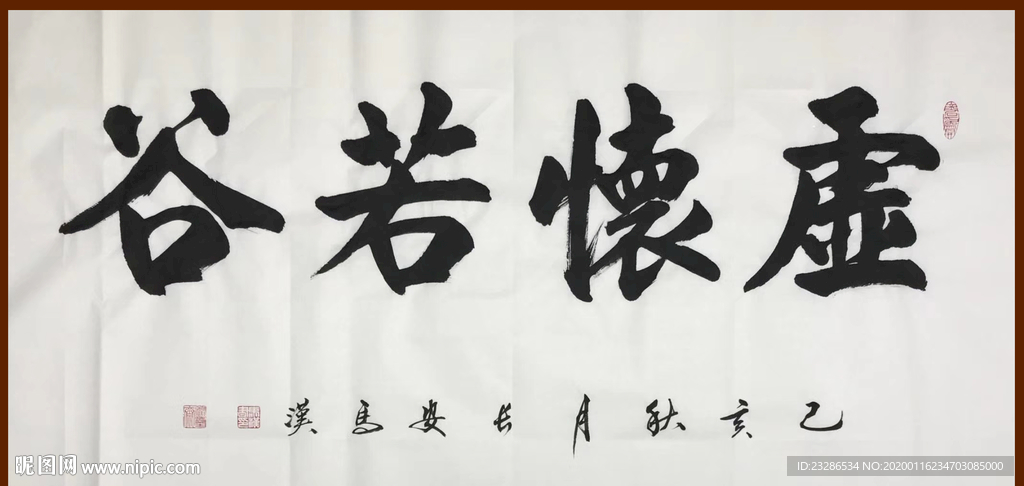 虛懷若谷
己亥秋月長安馬漢
昵图网 www.nipic.com
ID:23286534 NO:20200116234703085000